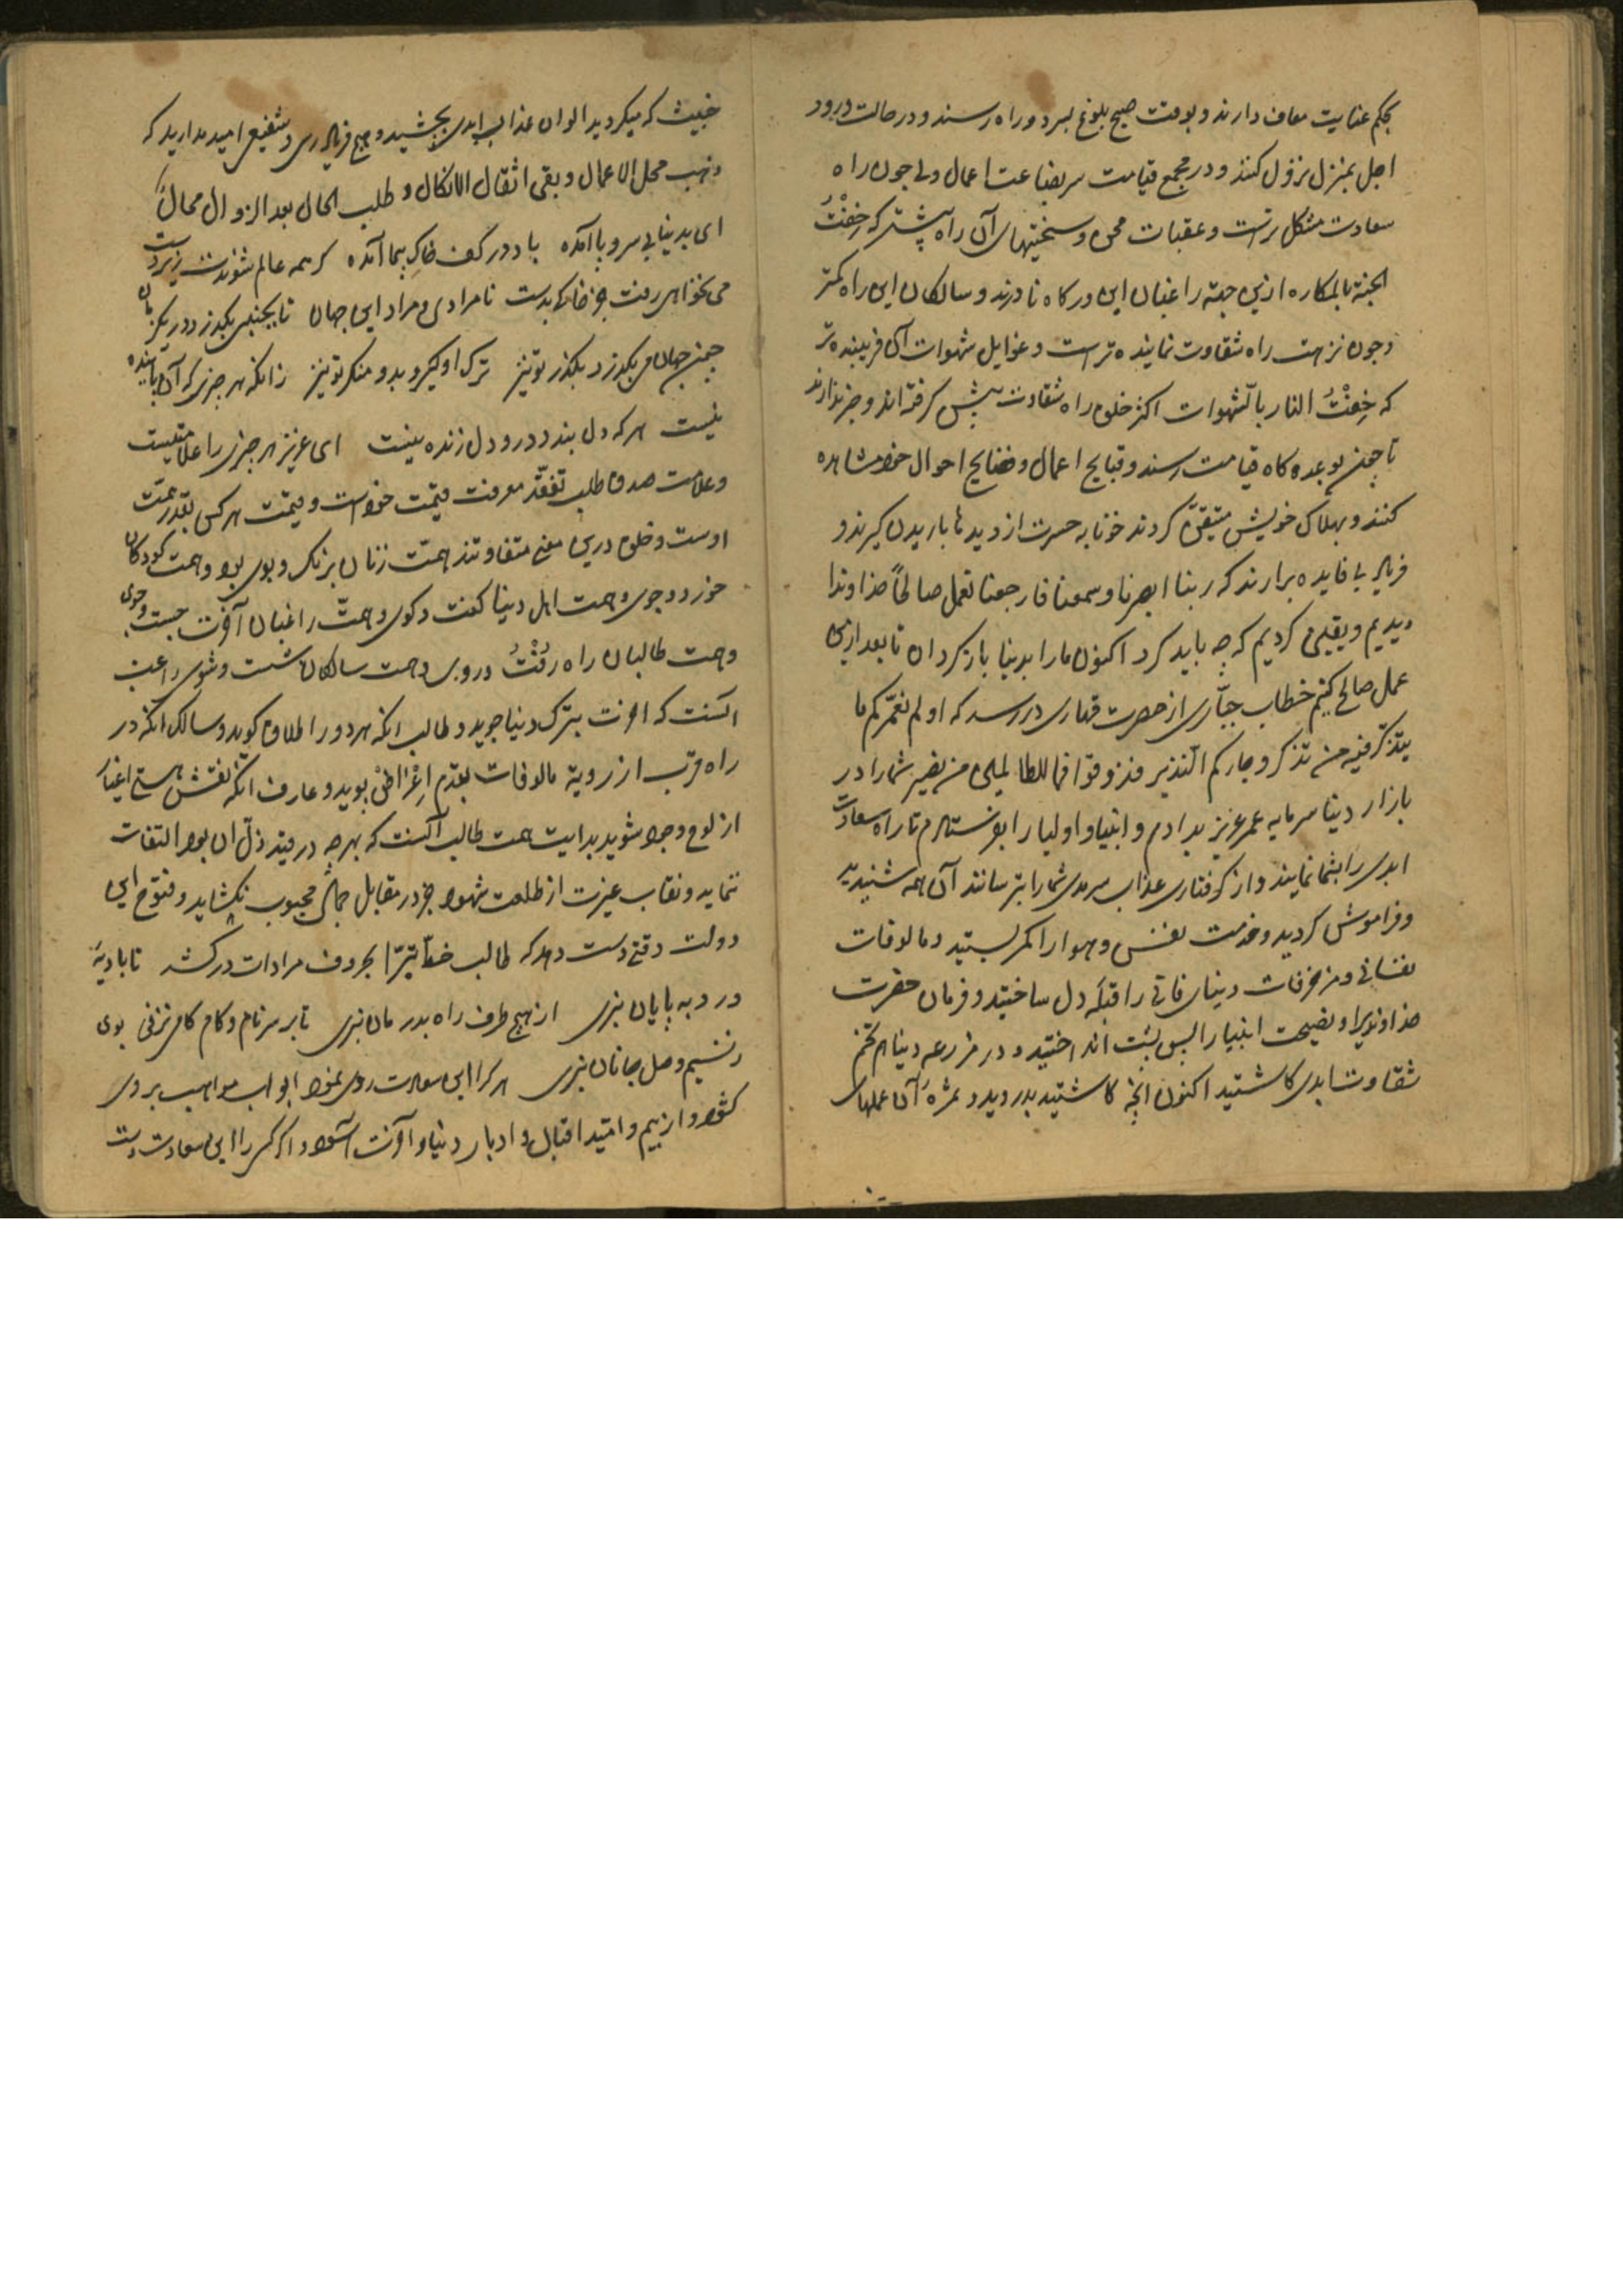 بحکم عنایت معاف دارند و بوقت صبح بلوغ بسر دو راه رسند و در حالت ورود
اجل بمنزل نزول کنند و در مجمع قیامت سر بضاعت اعمال ولی چون راه
سعادت مشکل ترست و عقبات محن و سختیهای آن راه بیشتر که حفّتْ
الجنة بالمکاره ازین جهة راغبان این درکاه نادرند و سالکان این راه کمتر
و چون نزهت راه شقاوت نماینده ترست و غوایل شهوات آن فریبنده تر
که حِفتْ النار بالشهوات اکثر خلق راه شقاوت پیش کرفته اند و خبر ندارند
تا چون بوعده کاه قیامت رسند و قبایح اعمال و فضایح احوال خود مشاهده
کنند و بهلاک خویش متیقن کردند خونابه حسرت از دیدها باریدن کیرند و
فریاد بی فایده برارند که ربنا ابصرنا و سمعنا فارجعنا نعمل صالحاً خداوندا
دیدیم و یقین کردیم که چه باید کرد اکنون ما را بدنیا باز کردان تا بعد ازین
عمل صالح کنیم خطاب جبّاری از حضرت قهاری در رسد که اولم نعمّرکم ما
یتذکّر فیه من تذکر و جاءکم النذیر فذوقوا فما للظالمین من نصیر شما را در
بازار دنیا سرمایه عمر عزیز بدادم و انبیا و اولیا را بفرستادم تا راه سعادت
ابدی را بشما نمایند و از کرفتاری عذاب سرمدی شما را بترسانند آن همه شنیدید
و فراموش کردید و خدمت نفس و هوا را کمر بستید و مالوفات
نفسانی و مزخرفات دنیای فانی را قبلهٔ دل ساختید و فرمان حضرت
خداوندیرا و نصیحت انبیا را پس پشت انداختید و در مزرعه دنیا هم تخم
شقاوت ابدی کاشتید اکنون انچه کاشتید بدروید و ثمرهٔ آن عملهای
خبیث که میکردید الوان عذاب ابدی بچشید و هیچ فریاد رسی و شفیعی امید مدارید که
ذهب محل الاعمال و بقی اثقال الانکال و طلب الحال بعد الزوال محال
ای بدنیا بی سر و پا آمده باد در کف خاک پیما آمده کر همه عالم شوندت زیر دست
می نخواهی رفت جز خاکی بدست نامرادی و مراد این جهان تا بجنبی بکذرد در یک زمان
چون جهان می بکذرد بکذر تو نیز ترک او کیر و بدو منکر تو نیز زانکه هر چیزی که آن پاینده
نیست هر که دل بندد درو دل زنده نیست ای عزیز هر چیزی را علامتیست
و علامت صدق طلب تفقّد معرفت قیمت خودست و قیمت هر کس بقدر همّت
اوست و خلق درین معنی متفاوتند همّت زنان برنک و بوی بود و همت کودکان
خورد و جوی و همت اهل دنیا کفت و کوی و همّت راغبان آخرت جست و جوی
و همت طالبان راه رُفتْ و روب و همت سالکان شست و شوی راغب
آنست که اخرت بترک دنیا جوید و طالب انکه هر دو را طلاق کوید و سالک انکه در
راه قرب از رویة مالوفات بقدم اِعْراضْ بپوید و عارف انکه نقش هستی اغیار
از لوح وجود شوید بدایت همت طالب آنست که بهر چه در قید ذل ان بود التفات
ننماید و نقاب عزت از طلعت شهود جز در مقابل جمال محبوب نکشاید و فتوح این
دولت وقتی دست دهد که طالب خط تبرّا بحروف مرادات در کشد تا بادیهٔ
درد به پایان نبری از هیچ طرف راه بدرمان نبری تا بر سر نام و کام کامی نزنی بوی
نسیم وصل جانان نبری هر کرا این سعادت روی نمود ابواب مواهب بروی
کشود و از بیم و امّید اقبال و ادبار دنیا و آخرت آسود و اکر کسی را این سعادت دست